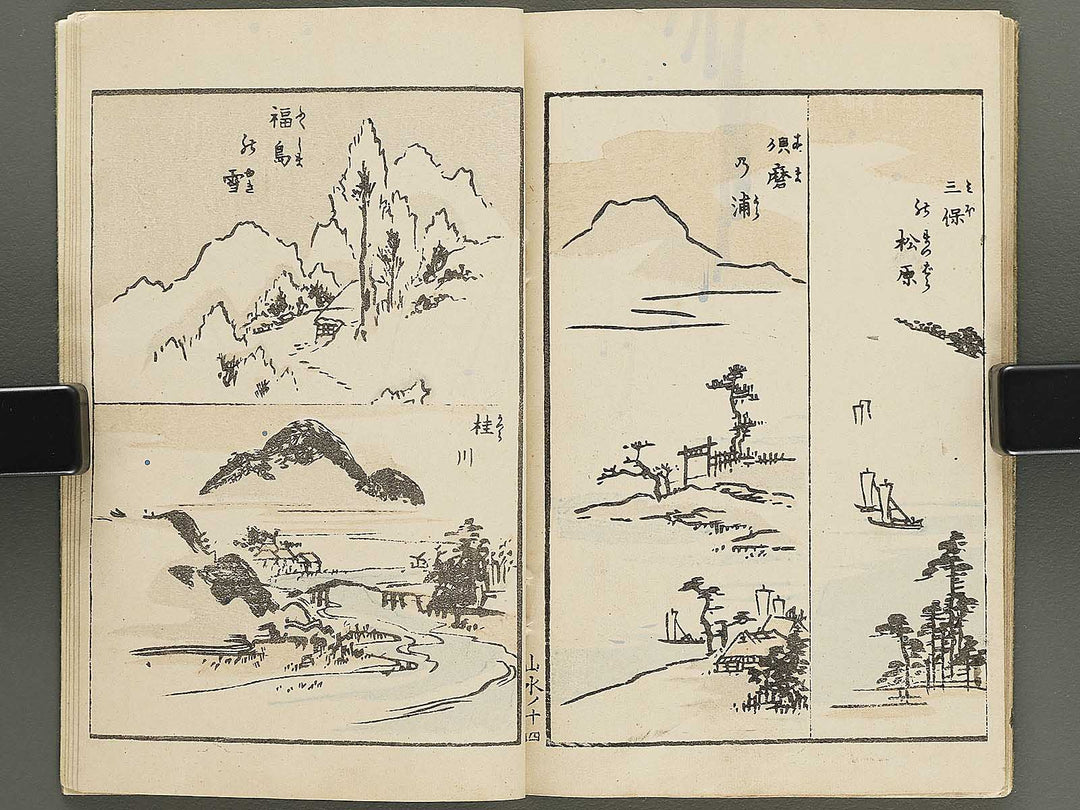 三保
みほ
の
松原
まつばら
須磨
すま
乃
浦
うら
福島
ふくしま
の
雪
ゆき
桂川
かつら
山水ノ十四